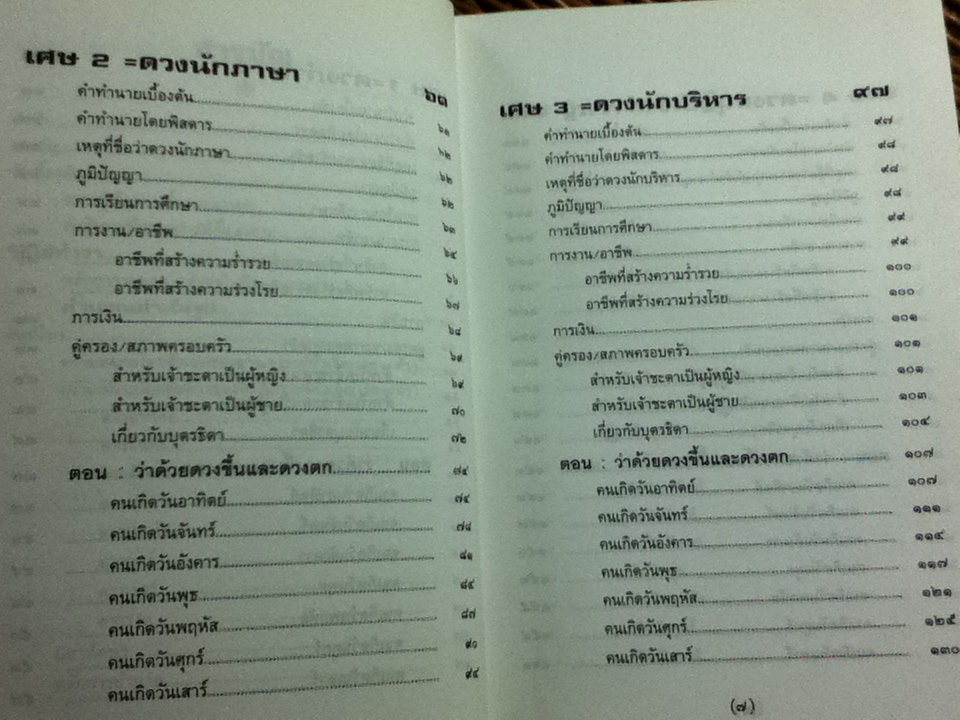 เศษ 2 =ดวงนักภาษา ๖๑
คำทำนายเบื้องต้น........ ๖๑
คำทำนายโดยพิสดาร........ ๖๒
เหตุที่ชื่อว่าดวงนักภาษา........ ๖๒
ภูมิปัญญา........ ๖๒
การเรียนการศึกษา........ ๖๓
การงาน/อาชีพ........ ๖๔
อาชีพที่สร้างความร่ำรวย........ ๖๖
อาชีพที่สร้างความร่วงโรย........ ๖๗
การเงิน........ ๖๘
คู่ครอง/สภาพครอบครัว........ ๖๙
สำหรับเจ้าชะตาเป็นผู้หญิง........ ๖๙
สำหรับเจ้าชะตาเป็นผู้ชาย........ ๗๐
เกี่ยวกับบุตรธิดา........ ๗๒
ตอน : ว่าด้วยดวงขึ้นและดวงตก........ ๗๔
คนเกิดวันอาทิตย์........ ๗๔
คนเกิดวันจันทร์........ ๗๘
คนเกิดวันอังคาร........ ๘๑
คนเกิดวันพุธ........ ๘๔
คนเกิดวันพฤหัส........ ๘๗
คนเกิดวันศุกร์........ ๙๐
คนเกิดวันเสาร์........ ๙๔
เศษ 3 =ดวงนักบริหาร ๙๗
คำทำนายเบื้องต้น........ ๙๗
คำทำนายโดยพิสดาร........ ๙๘
เหตุที่ชื่อว่าดวงนักบริหาร........ ๙๘
ภูมิปัญญา........ ๙๘
การเรียนการศึกษา........ ๙๙
การงาน/อาชีพ........ ๙๙
อาชีพที่สร้างความร่ำรวย........ ๑๐๐
อาชีพที่สร้างความร่วงโรย........ ๑๐๐
การเงิน........ ๑๐๑
คู่ครอง/สภาพครอบครัว........ ๑๐๑
สำหรับเจ้าชะตาเป็นผู้หญิง........ ๑๐๑
สำหรับเจ้าชะตาเป็นผู้ชาย........ ๑๐๓
เกี่ยวกับบุตรธิดา........ ๑๐๔
ตอน : ว่าด้วยดวงขึ้นและดวงตก........ ๑๐๗
คนเกิดวันอาทิตย์........ ๑๐๗
คนเกิดวันจันทร์........ ๑๑๑
คนเกิดวันอังคาร........ ๑๑๔
คนเกิดวันพุธ........ ๑๑๗
คนเกิดวันพฤหัส........ ๑๒๑
คนเกิดวันศุกร์........ ๑๒๕
คนเกิดวันเสาร์........ ๑๓๐
(๗)